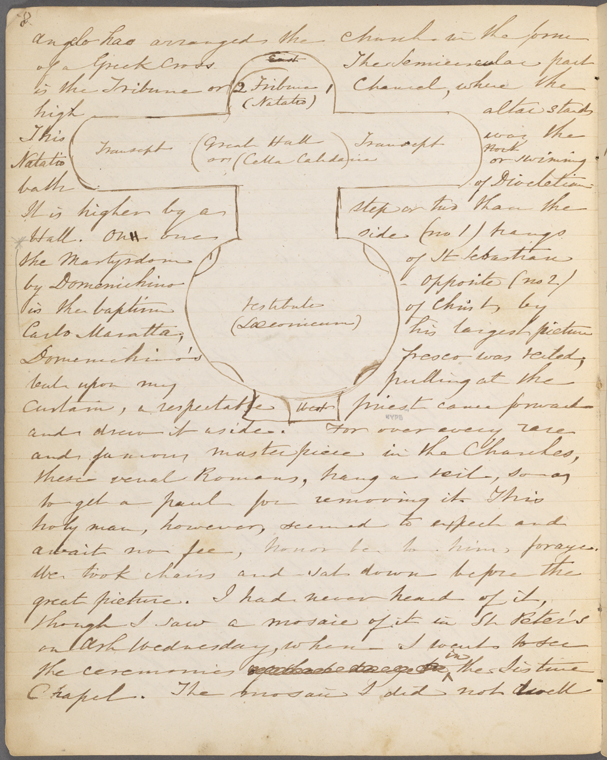 8.
angelo has arranged the church in the form
of a Greek Cross East The Semicircular part
is the Tribune or 2 Tribune 1 Chancel, where the
high (Natatio) altar stands
This was the
Transept (Great Hall Transept
Natatio or (Cella Calidaria or swimming
bath of Diocletian
It is higher by a step or two than the
Hall. On one side (no 1) hangs
the Martyrdom of St Sebastian
by Domenichino - opposite (no 2)
is the baptism of Christ, by
Vestibule
(Laconicum)
Carlo Maratta, his largest picture
Domenichino's fresco was veiled,
but upon my pulling at the
curtain, a respectable West priest came forward
and drew it aside. For over every rare
and famous masterpiece in the Churches,
these venal Romans, hang a veil, so as
to get a paul for removing it. This
holy man, however, seemed to expect and
await no fee, honor be to him, for aye.
We took chairs and sat down before the
great picture. I had never heard of it,
though I saw a mosaic of it in St Peter's
on Ash Wednesday, when I went to see
the ceremonies in the Sistine
Chapel. The mosaic I did not dwell